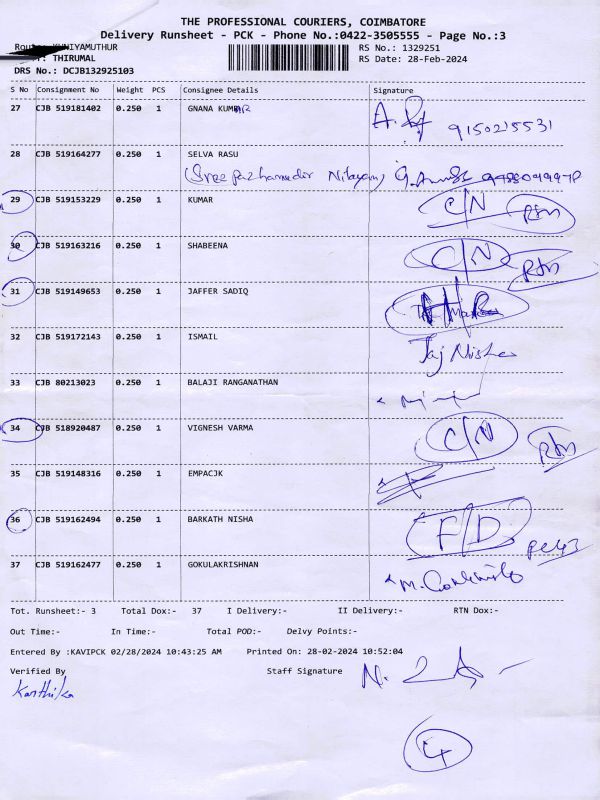 THE PROFESSIONAL COURIERS, COIMBATORE
Delivery Runsheet - PCK - Phone No.:0422-3505555 - Page No.:3
KUNIYAMUTHUR RS No.: 1329251
: THIRUMAL RS Date: 28-Feb-2024
DRS No.: DCJB132925103
S No Consignment No Weight PCS Consignee Details Signature
27 CJB 519181402 0.250 1 GNANA KUMAR
9150215531
28 CJB 519164277 0.250 1 SELVA RASU
29 CJB 519153229 0.250 1 KUMAR C/N RTN
30 CJB 519163216 0.250 1 SHABEENA C/N RTN
31 CJB 519149653 0.250 1 JAFFER SADIQ
32 CJB 519172143 0.250 1 ISMAIL Taj Nisha
33 CJB 80213023 0.250 1 BALAJI RANGANATHAN
34 CJB 518920487 0.250 1 VIGNESH VARMA C/N RTN
35 CJB 519148316 0.250 1 EMPACJK
36 CJB 519162494 0.250 1 BARKATH NISHA F/D
37 CJB 519162477 0.250 1 GOKULAKRISHNAN
Tot. Runsheet:- 3 Total Dox:- 37 I Delivery:- II Delivery:- RTN Dox:-
Out Time:- In Time:- Total POD:- Delvy Points:-
Entered By :KAVIPCK 02/28/2024 10:43:25 AM Printed On: 28-02-2024 10:52:04
Verified By Staff Signature
Karthika